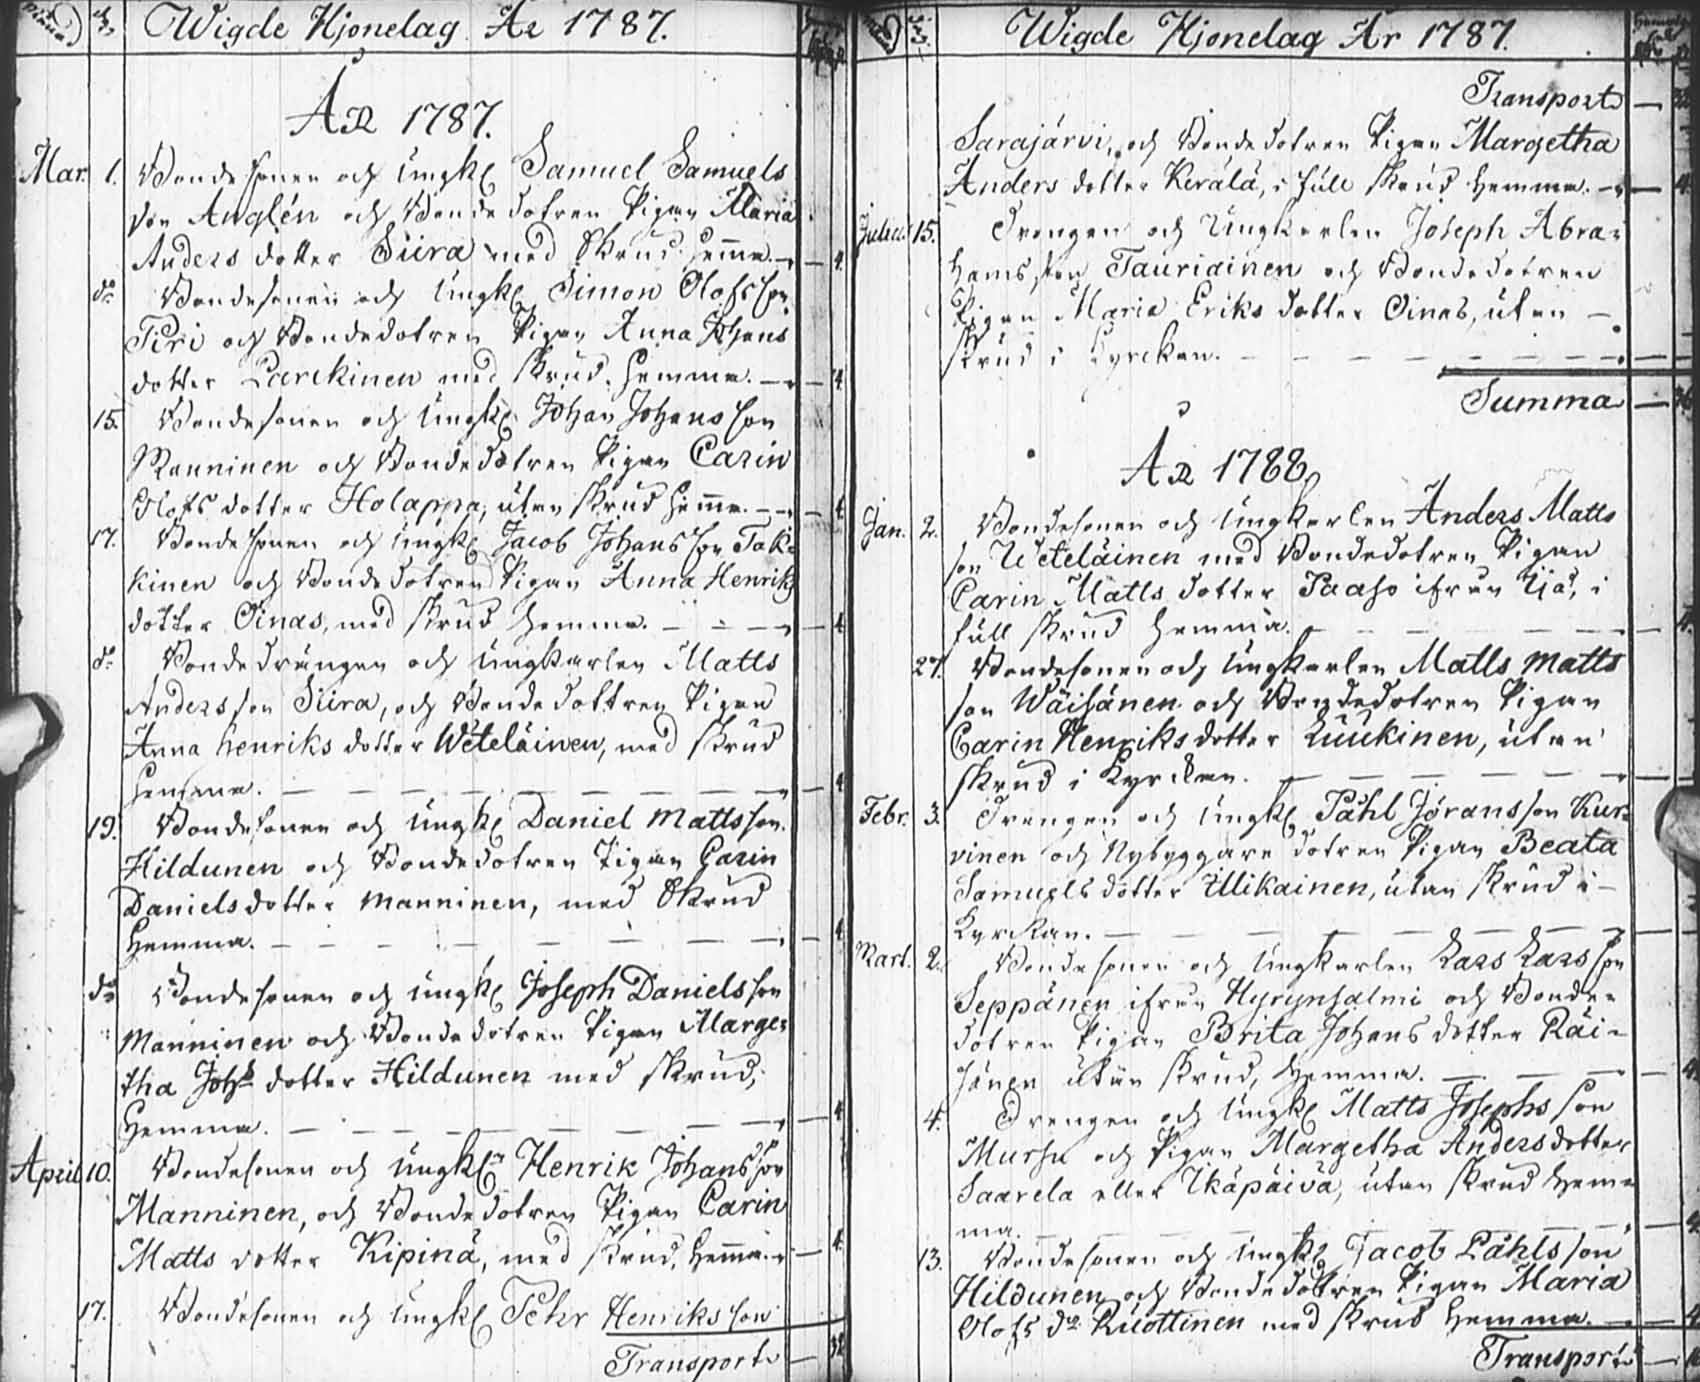 Wigde Hjonelag År 1787.
År 1787.
Mar. 1. Bonde sonen och Ungk. Samuel Samuels
son Anglén och Bonde dotren Pigan Maria
Anders dotter Siira med Skrud hemma. 4.
do Bondesonen och Ungk. Simon Olofs son
Piri och Bondedotren Pigan Anna Johans
dotter Larckinen med skrud hemma. 4
15. Bondesonen och Ungk. Johan Johans son
Manninen och Bondedotren Pigan Carin
Olofs dotter Holappa, utan skrud hemma. 4
17. Bonde sonen och Ungk. Jacob Johans son Tak-
kinen och Bonde dotren Pigan Anna Henriks
dotter Oinas, med skrud hemma. 4
do Bondedrängen och Ungkarlen Matts
Anders son Siira, och Bonde dottren Pigan
Anna henriks dotter Weteläinen, med skrud
hemma. 4
19. Bondesonen och Ungk. Daniel Matts son
Hildunen och Bondedotren Pigan Carin
Daniels dotter Manninen, med Skrud
Hemma. 4
do Bondesonen och Ungk. Joseph Daniels son
Manninen och Bondedotren Pigan Marge-
tha Johs dotter Hildunen med skrud,
Hemma. 4
April 10. Bondesonen och Ungkn Henrik Johans son
Manninen, och Bondedotren Pigan Carin
Matts dotter Kipinä, med skrud, hemma. 4
17. Bondesonen och Ungk. Pehr Henriks son
Transport 32
Wigde Hjonelag År 1787.
Transport 32
Sarajärvi, och Bonde dotren Pigan Margetha
Anders dotter Kerälä, i full skrud hemma. 4
Julii 15. Drengen och Ungkarlen Joseph Abra-
hams son Tauriainen och Bondedotren
Pigan Maria Eriks dotter Oinas, utan
skrud i Kyrckan.
Summa 36
År 1788.
Jan. 2. Bondesonen och Ungkarlen Anders Matts
son Weteläinen med Bondedotren Pigan
Carin Matts dotter Paaso ifrån Ijå, i
full skrud hemma. 4
27. Bondesonen och Ungkarlen Matts Matts
son Wäisänen och Bondedotren Pigan
Carin Henriks dotter Luukinen, utan
skrud i Kyrckan.
Febr. 3. Drengen och Ungk. Påhl Jörans son Kur-
vinen och Nybyggare dotren Pigan Beata
Samuels dotter Ulikainen, utan skrud i
Kyrckan.
Mart. 2. Bonde sonen och Ungkarlen Lars Lars son
Seppänen ifrån Hyrynsalmi och Bonde-
dotren Pigan Brita Johans dotter Räi-
sänen utan skrud, hemma. 4
4. Drengen och Ungk. Matts Josephs son
Mursu och Pigan Margetha Anders dotter
Saarela eller Ikäpäivä, utan skrud hem-
ma. 4
13. Bondesonen och Ungk. Jacob Påhls son
Hildunen och Bondedotren Pigan Maria
Olofs dr Ruottinen med skrud hemma. 4
Transport 16